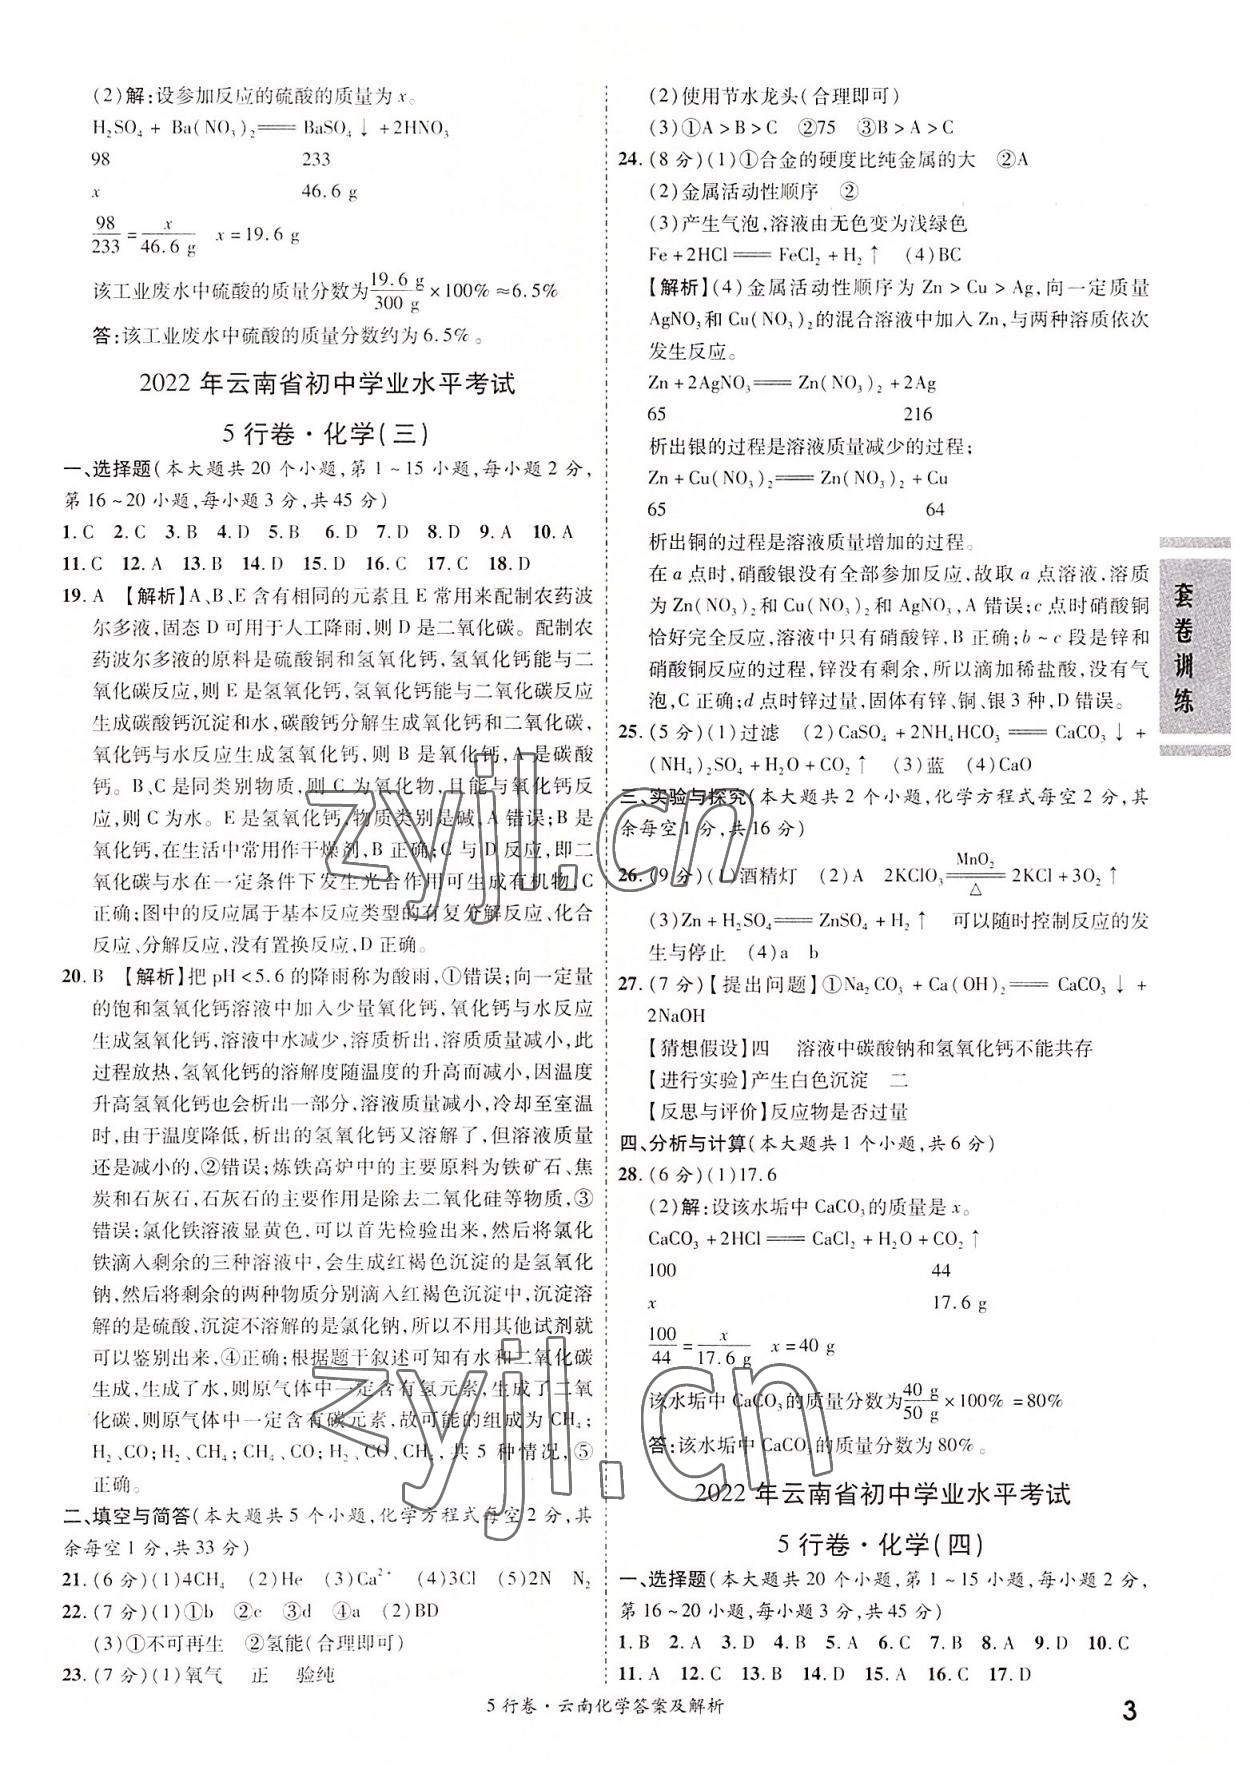 (2)解:设参加反应的硫酸的质量为x。
H₂SO₄ + Ba(NO₃)₂══BaSO₄↓+2HNO₃
98 233
x 46.6 g
98/233 = x/46.6 g x=19.6 g
该工业废水中硫酸的质量分数为19.6 g/300 g×100%≈6.5%
答:该工业废水中硫酸的质量分数约为6.5%。
2022年云南省初中学业水平考试
5行卷·化学(三)
一、选择题(本大题共20个小题,第1~15小题,每小题2分,
第16~20小题,每小题3分,共45分)
1.C 2.C 3.B 4.D 5.B 6.D 7.D 8.D 9.A 10.A
11.C 12.A 13.B 14.D 15.D 16.C 17.C 18.D
19.A 【解析】A、B、E含有相同的元素且E常用来配制农药波
尔多液,固态D可用于人工降雨,则D是二氧化碳。配制农
药波尔多液的原料是硫酸铜和氢氧化钙,氢氧化钙能与二
氧化碳反应,则E是氢氧化钙,氢氧化钙能与二氧化碳反应
生成碳酸钙沉淀和水,碳酸钙分解生成氧化钙和二氧化碳,
氧化钙与水反应生成氢氧化钙,则B是氧化钙,A是碳酸
钙。B、C是同类别物质,则C为氧化物,且能与氧化钙反
应,则C为水。E是氢氧化钙,物质类别是碱,A错误;B是
氧化钙,在生活中常用作干燥剂,B正确;C与D反应,即二
氧化碳与水在一定条件下发生光合作用可生成有机物,C
正确;图中的反应属于基本反应类型的有复分解反应、化合
反应、分解反应,没有置换反应,D正确。
20.B 【解析】把pH<5.6的降雨称为酸雨,①错误;向一定量
的饱和氢氧化钙溶液中加入少量氧化钙,氧化钙与水反应
生成氢氧化钙,溶液中水减少,溶质析出,溶质质量减小,此
过程放热,氢氧化钙的溶解度随温度的升高而减小,因温度
升高氢氧化钙也会析出一部分,溶液质量减小,冷却至室温
时,由于温度降低,析出的氢氧化钙又溶解了,但溶液质量
还是减小的,②错误;炼铁高炉中的主要原料为铁矿石、焦
炭和石灰石,石灰石的主要作用是除去二氧化硅等物质,③
错误;氯化铁溶液显黄色,可以首先检验出来,然后将氯化
铁滴入剩余的三种溶液中,会生成红褐色沉淀的是氢氧化
钠,然后将剩余的两种物质分别滴入红褐色沉淀中,沉淀溶
解的是硫酸,沉淀不溶解的是氯化钠,所以不用其他试剂就
可以鉴别出来,④正确;根据题干叙述可知有水和二氧化碳
生成,生成了水,则原气体中一定含有氢元素,生成了二氧
化碳,则原气体中一定含有碳元素,故可能的组成为CH₄;
H₂、CO;H₂、CH₄;CH₄、CO;H₂、CO、CH₄,共5种情况,⑤
正确。
二、填空与简答(本大题共5个小题,化学方程式每空2分,其
余每空1分,共33分)
21.(6分)(1)4CH₄ (2)He (3)Ca²⁺ (4)3Cl (5)2N N₂
22.(7分)(1)①b ②c ③d ④a (2)BD
(3)①不可再生 ②氢能(合理即可)
23.(7分)(1)氧气 正 验纯
(2)使用节水龙头(合理即可)
(3)①A>B>C ②75 ③B>A>C
24.(8分)(1)①合金的硬度比纯金属的大 ②A
(2)金属活动性顺序 ②
(3)产生气泡,溶液由无色变为浅绿色
Fe+2HCl══FeCl₂+H₂↑ (4)BC
【解析】(4)金属活动性顺序为Zn>Cu>Ag,向一定质量
AgNO₃和Cu(NO₃)₂的混合溶液中加入Zn,与两种溶质依次
发生反应。
Zn+2AgNO₃══Zn(NO₃)₂+2Ag
65 216
析出银的过程是溶液质量减少的过程;
Zn+Cu(NO₃)₂══Zn(NO₃)₂+Cu
65 64
析出铜的过程是溶液质量增加的过程。
在a点时,硝酸银没有全部参加反应,故取a点溶液,溶质
为Zn(NO₃)₂和Cu(NO₃)₂和AgNO₃,A错误;c点时硝酸铜
恰好完全反应,溶液中只有硝酸锌,B正确;b~c段是锌和
硝酸铜反应的过程,锌没有剩余,所以滴加稀盐酸,没有气
泡,C正确;d点时锌过量,固体有锌、铜、银3种,D错误。
25.(5分)(1)过滤 (2)CaSO₄+2NH₄HCO₃══CaCO₃↓+
(NH₄)₂SO₄+H₂O+CO₂↑ (3)蓝 (4)CaO
三、实验与探究(本大题共2个小题,化学方程式每空2分,其
余每空1分,共16分)
26.(9分)(1)酒精灯 (2)A 2KClO₃═MnO₂/△═2KCl+3O₂↑
(3)Zn+H₂SO₄══ZnSO₄+H₂↑ 可以随时控制反应的发
生与停止 (4)a b
27.(7分)【提出问题】①Na₂CO₃+Ca(OH)₂══CaCO₃↓+
2NaOH
【猜想假设】四 溶液中碳酸钠和氢氧化钙不能共存
【进行实验】产生白色沉淀 二
【反思与评价】反应物是否过量
四、分析与计算(本大题共1个小题,共6分)
28.(6分)(1)17.6
(2)解:设该水垢中CaCO₃的质量是x。
CaCO₃+2HCl══CaCl₂+H₂O+CO₂↑
100 44
x 17.6 g
100/44 = x/17.6 g x=40 g
该水垢中CaCO₃的质量分数为40 g/50 g×100%=80%
答:该水垢中CaCO₃的质量分数为80%。
2022年云南省初中学业水平考试
5行卷·化学(四)
一、选择题(本大题共20个小题,第1~15小题,每小题2分,
第16~20小题,每小题3分,共45分)
1.B 2.A 3.D 4.B 5.A 6.D 7.B 8.A 9.D 10.C
11.A 12.C 13.B 14.D 15.A 16.C 17.D
套卷训练
5行卷·云南化学答案及解析
3
zyjl.cn
zyjl.cn